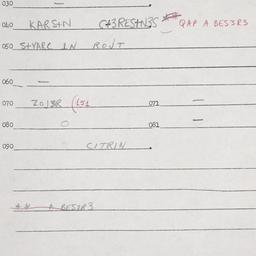 030 —
040 KARSTN C+3RESTN3S ** QAP A BES3R3
050 STVARC IN ROJT
060 —
070 ZOJ3R (151 071 —
080 O 081 —
090 CITRIN
** A BESJR3